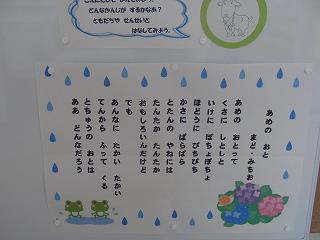 どんなかんじが するかなあ？
ともだちや せんせいと
はなしてみよう。
あめの おと
まど・みちお
あめの おとって
くさに しとしと
いけに ぽちょぽちょ
ほどうに ぴちぴち
かさに ぱらぱら
とたんの やねには
たんたか たんたか
おもしろいんだけど
でも
あんなに たかい たかい
てんから ふって くる
とちゅうの おとは
ああ どんなだろう